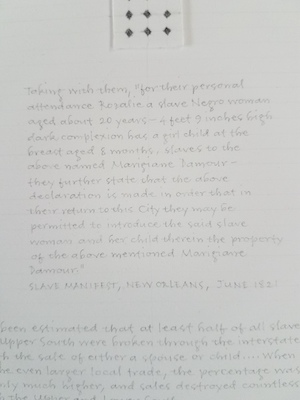 Taking with them, "for their personal
attendance Rozalie a slave Negro woman
aged about 20 years – 4 feet 9 inches high
dark complexion has a girl child at the
breast aged 8 months. Slaves to the
above named Marigiane Damour –
they further state that the above
declaration is made in order that in
their return to this City they may be
permitted to introduce the said slave
woman and her child therein the property
of the above mentioned Marigiane
Damour."
SLAVE MANIFEST, NEW ORLEANS, JUNE 1821
been estimated that at least half of all slave
Upper South were broken through the interstate
the sale of either a spouse or child.... When
even larger local trade, the percentage was
much higher, and sales destroyed countless